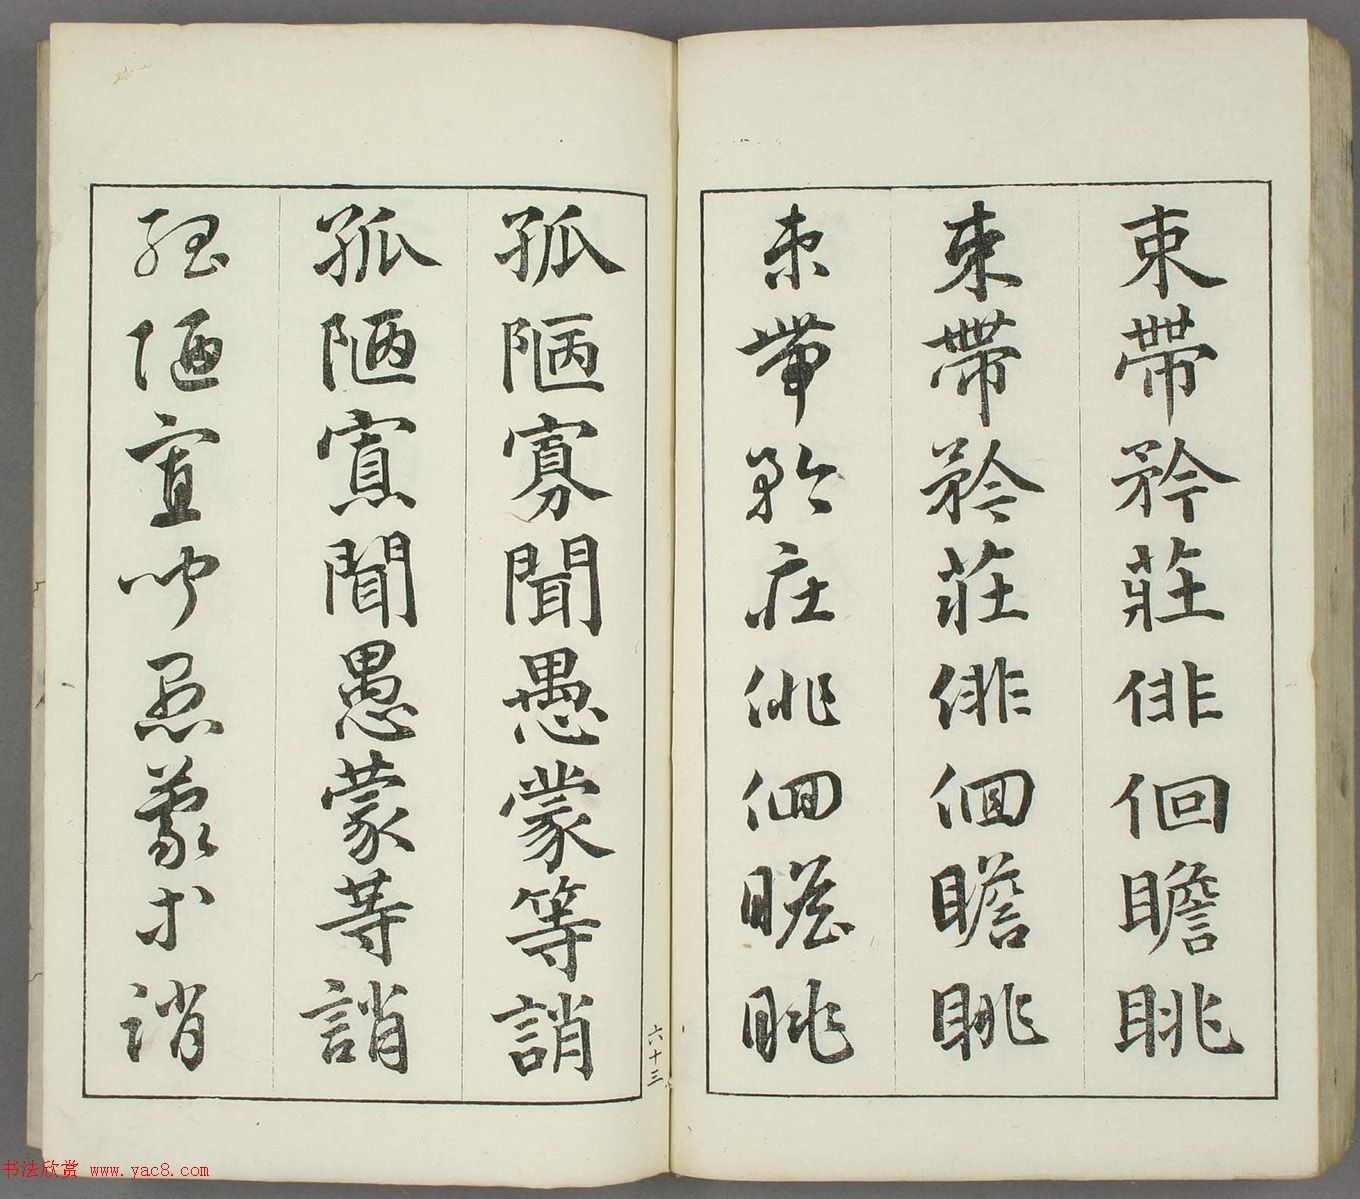 束帶矜莊俳佪瞻眺
束帶矜莊俳佪瞻眺
束帶矜莊俳佪瞻眺
六十三
孤陋寡聞愚蒙等誚
孤陋寡聞愚蒙等誚
孤陋寡聞愚蒙等誚
书法欣赏 www.yac8.com